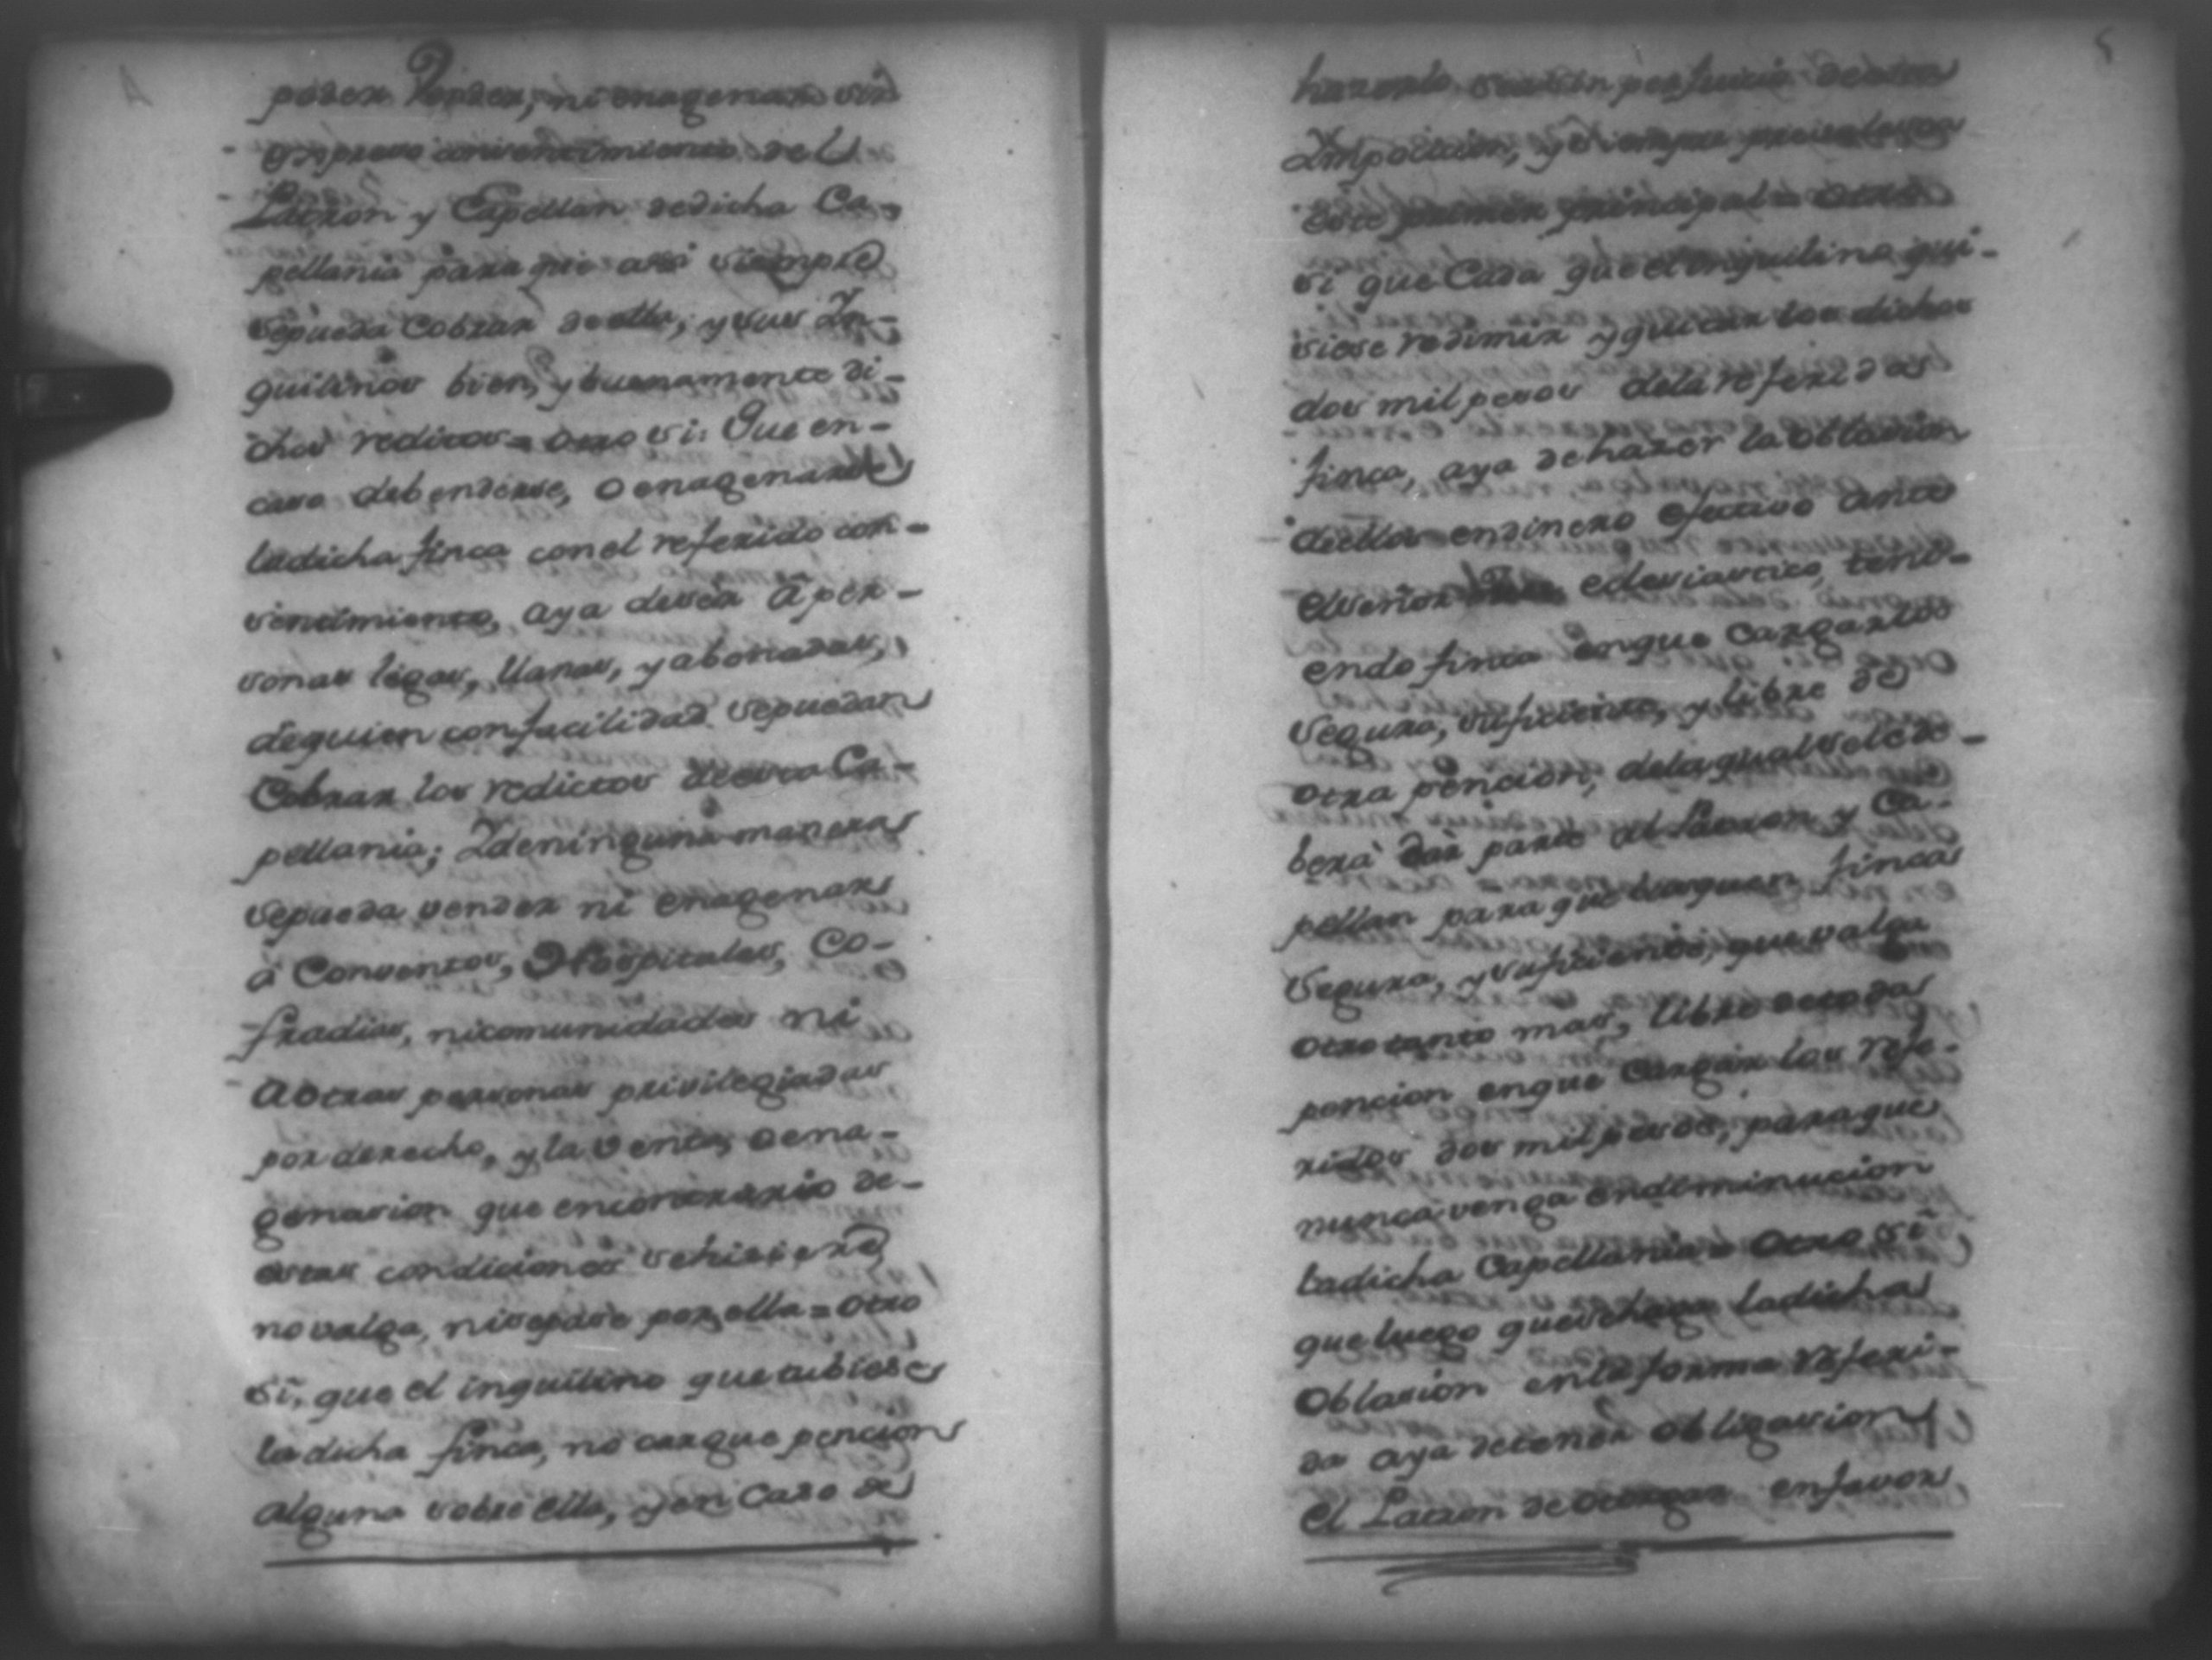 poder Vender, ni enagenar sin
expreso consentimiento del
Patron y Capellan dedicha Ca-
pellania para que assi siempre
sepueda Cobrar deella, y sus In-
quilinos bien, y buenamente di-
chos reditos = otro si: Que en-
caso debenderse, o enagenarse
ladicha finca conel referido con-
sentimiento, aya deser â per-
sonas legas, llanas, y abonadas,
dequien confacilidad sepuedan
Cobrar los redictos deesta Ca-
pellania; Ydeninguna manera
sepueda vender ni enagenar
â Conventos, Hospitales, Co-
fradias, nicomunidades ni
aotras personas privilegiadas
por derecho, y la venta, oena-
genasion que encontrario de-
estas condiciones sehisiere
novalga, nisepase por ella = otro
si, que el inquilino quetubiese
ladicha finca, no cargue pencion
alguna sobre ella, y en Caso de
5
hazerlo sea sin perjuicio deesta
Imposicion, y siempre
este primer principal = otro
si que Cada que el inquilino qui-
siese redimir y quitar los dichos
dos mil pesos dela referida
finca, aya dehazer la oblasion
deellos endinero efectivo ante
elseñor eclesiastico, teni-
endo finca enque cargarlos
segura, suficiente, y libre de
otra pencion, dela qual sele de-
berá dar parte al Patron y Ca-
pellan para que busquen finca
segura, y suficiente, que valga
otro tanto mas, libre detoda
poncion enque Cargar los refe-
ridos dos mil pesos, para que
nunca venga endiminucion
ladicha Capellania = Otro si
que luego quesehaga ladicha
Oblasion enla forma referi-
da aya detener obligasion
el Patron de otorgar enfavor